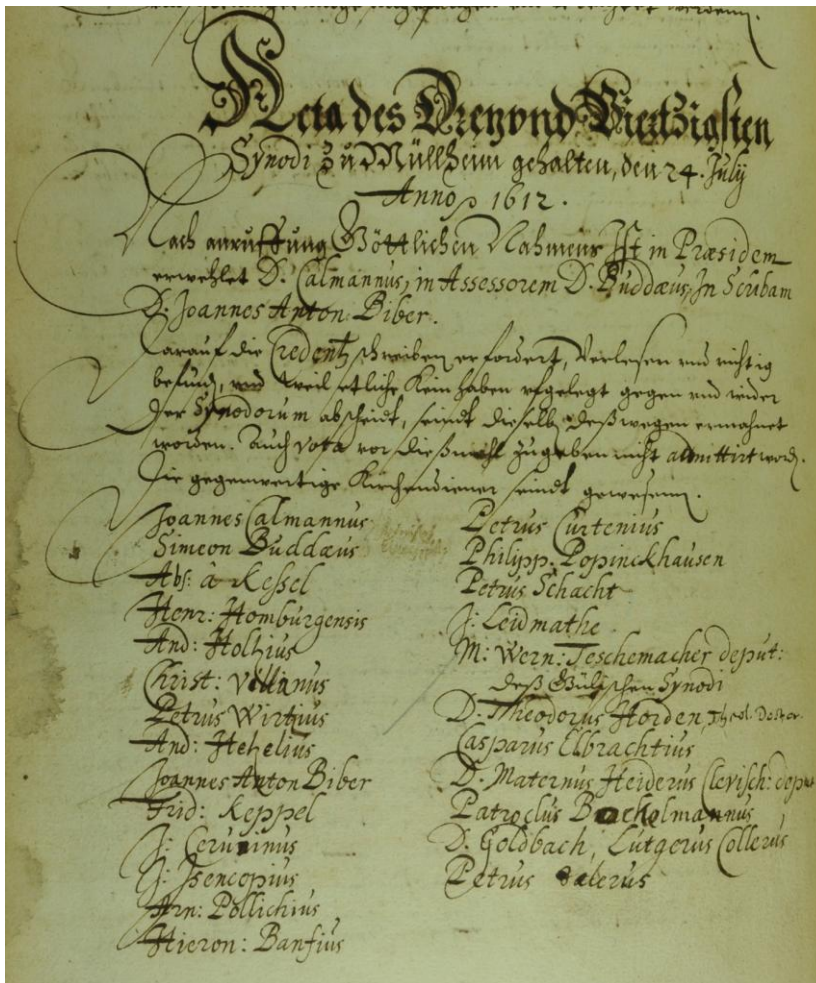 Acta des Drey vnd Viertzigsten
Synodi zu Müllheim gehalten, den 24. July
Anno 1612.
Nach anruffung Göttlichen Nahmens Ist in Præsidem
erwehlet D. Calmannus, in Assessorem D. Buddæus, In Scribam
D. Joannes Anton Biber.
Darauf die Credentz schreiben erfordert, Verlesen vnd richtig
befunden, vnd weil etliche kein haben vfgelegt gegen vnd wider
der Synodorum abscheidt, seindt dieselb deßwegen ermahnet
worden. Auch vota vor dießmahl zugeben nicht admittirt word.
Die gegenwertige Kirchendiener seindt gewesenn.
Joannes Calmannus
Simeon Buddæus
Abs: à Kessel
Henr: Homburgensis
And: Holtzius
Christ: Vollianus
Petrus Wirtzius
And: Hetzelius
Joannes Anton Biber
Frid: Keppel
J: Isencopius
Arn: Pollichius
Hieron: Banfius
Petrus Curtenius
Philipp. Popinckhausen
Petrus Schacht
J: Leidmathe
M: Wern: Teschemacher deput:
deß Gülischen Synodi
D. Theodorus Horden, Theol. Doctor.
Casparus Elbrachtius
D. Maternus Heiderus Clevisch: deput
Patroclus Bockolmannus
D. Goldbach, Lutgerus Collerus
Petrus